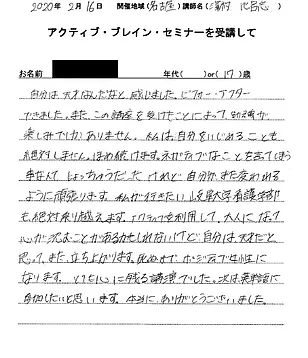 2020年 2月16日 開催地域(名古屋)講師名(
アクティブ・ブレイン・セミナーを受講して
お名前 年代( )or(17)歳
自分は天才なんだなと感じました。ビフォー・アフター
できました。また、この講座を受けたことによって、
楽しみでしかありません。私は自分をいじめることも
絶対しません。ほめ続けます。ネガティブなことを言ってしまう
事なんてしょっちゅうだったけれど自分がまた変われる
ように頑張ります。私が行きたい 大学看護学部
も絶対乗り越えます。 を利用して、大人になって
心が沈むことがあるかもしれないけど自分は天才だと
思って、また、立ち上がります。 ポジティブな女性に
なります。とても心に残る講演でした。次は英単語に
参加したいと思います。本当に、ありがとうございました。